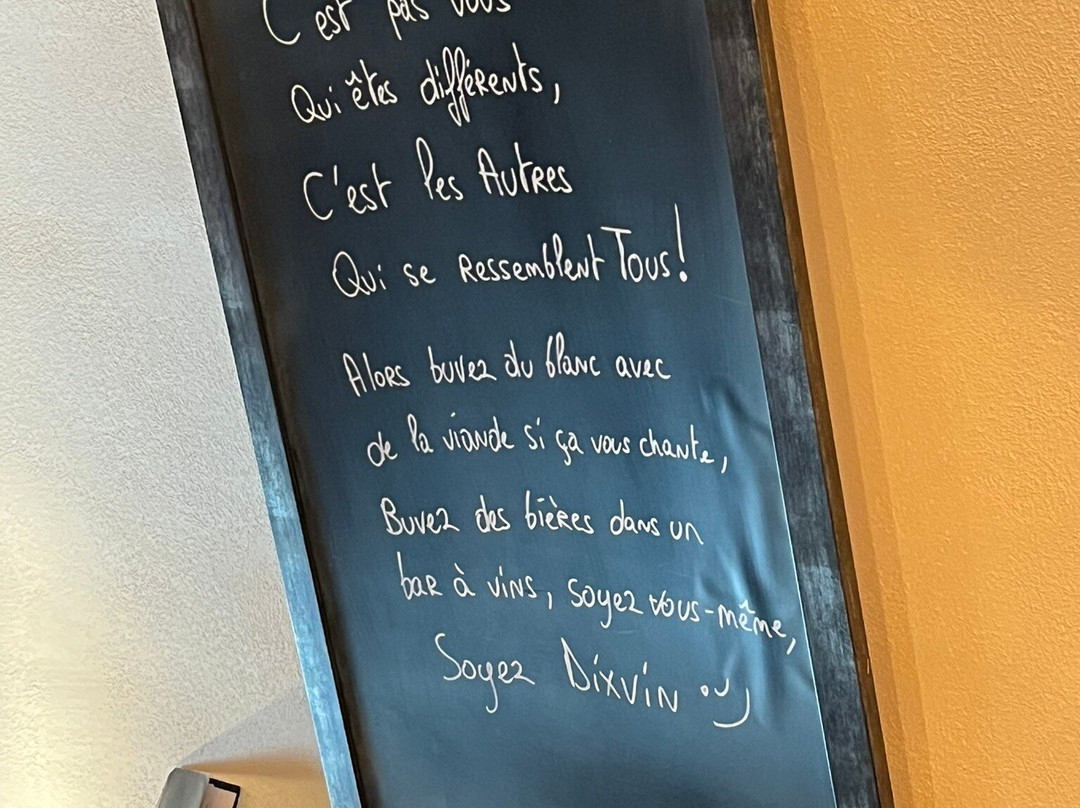 C'est pas vous
Qui êtes différents,
C'est les Autres
Qui se ressemblent Tous!
Alors buvez du blanc avec
de la viande si ça vous chante,
Buvez des bières dans un
bar à vins, soyez vous-même,
Soyez Dixvin